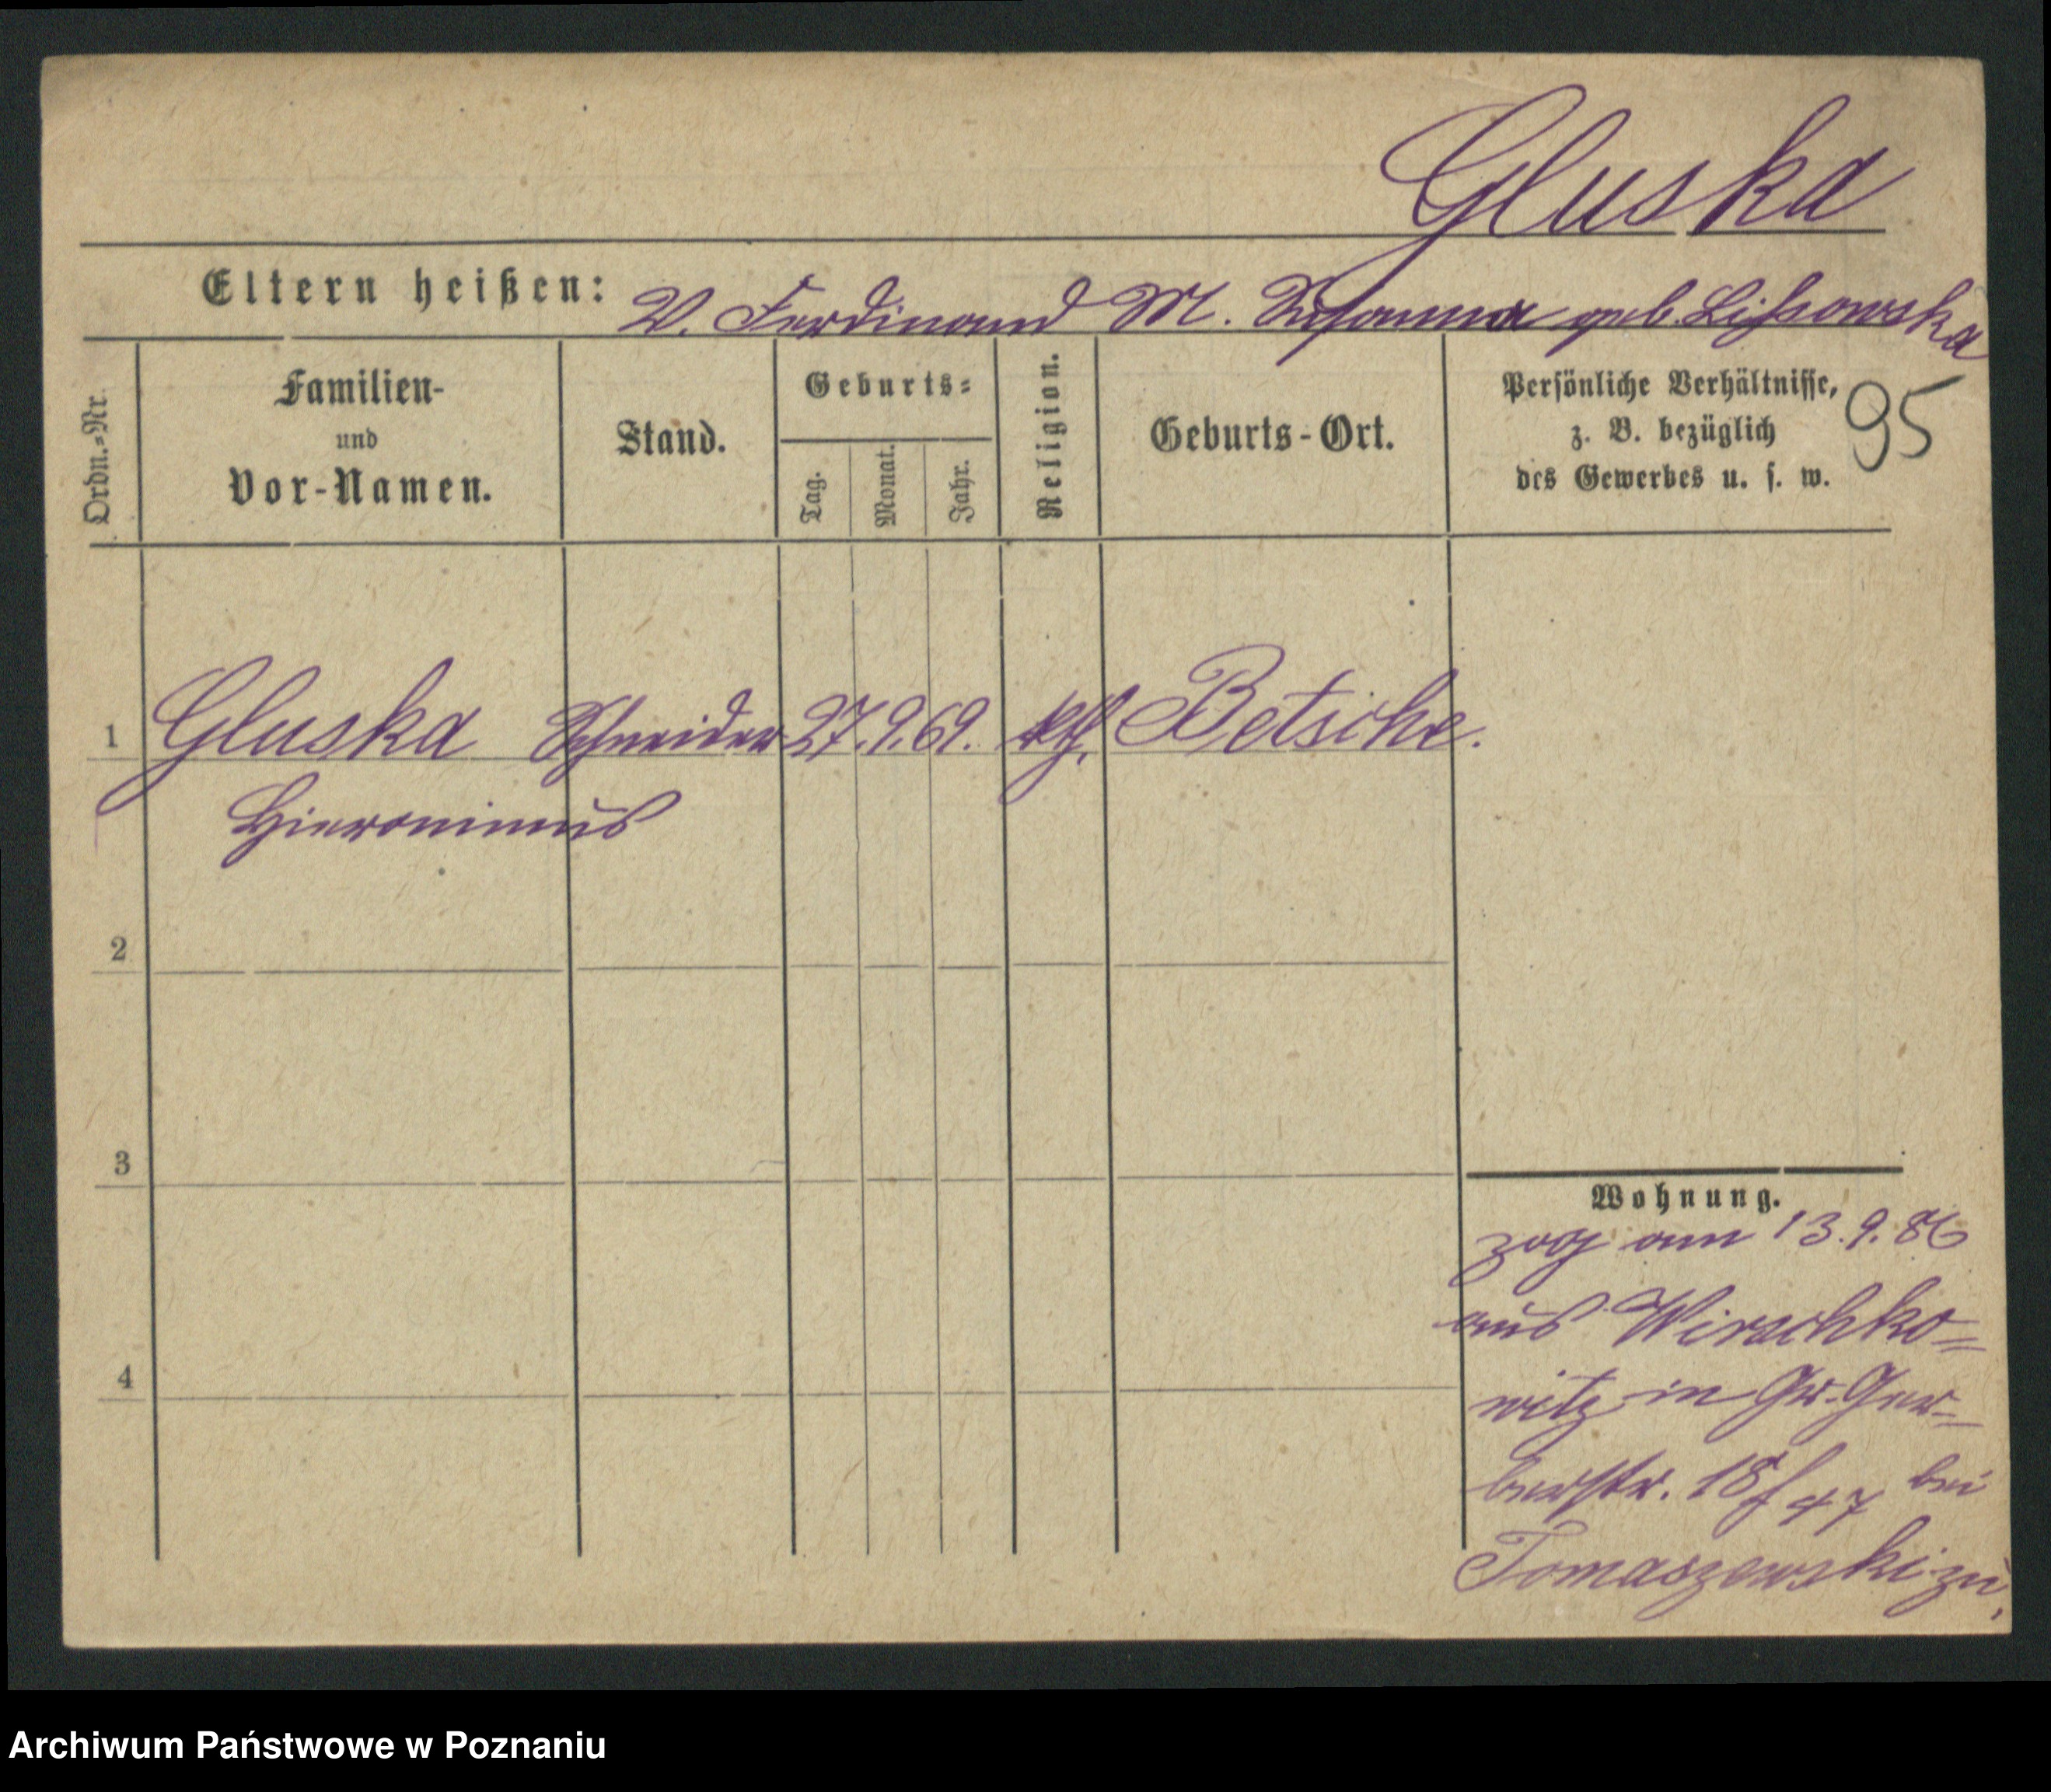 Gluska
Eltern heißen: V. Ferdinand M. Susanna geb. Lissowska
Ordn.=Nr.
Familien-
und
Vor-Namen.
Stand.
Geburts=
Tag.
Monat.
Jahr.
Religion.
Geburts-Ort.
Persönliche Verhältnisse,
z. B. bezüglich
des Gewerbes u. s. w.
95
1 Gluska Schneider 27. 9. 69. kth. Betsche.
Hieronimus
2
3
4
Wohnung.
zog am 13. 9. 86
aus Wirschko=
witz in Gr. Ger=
berstr. 18/47 bei
Tomaszewski zu.
Archiwum Państwowe w Poznaniu